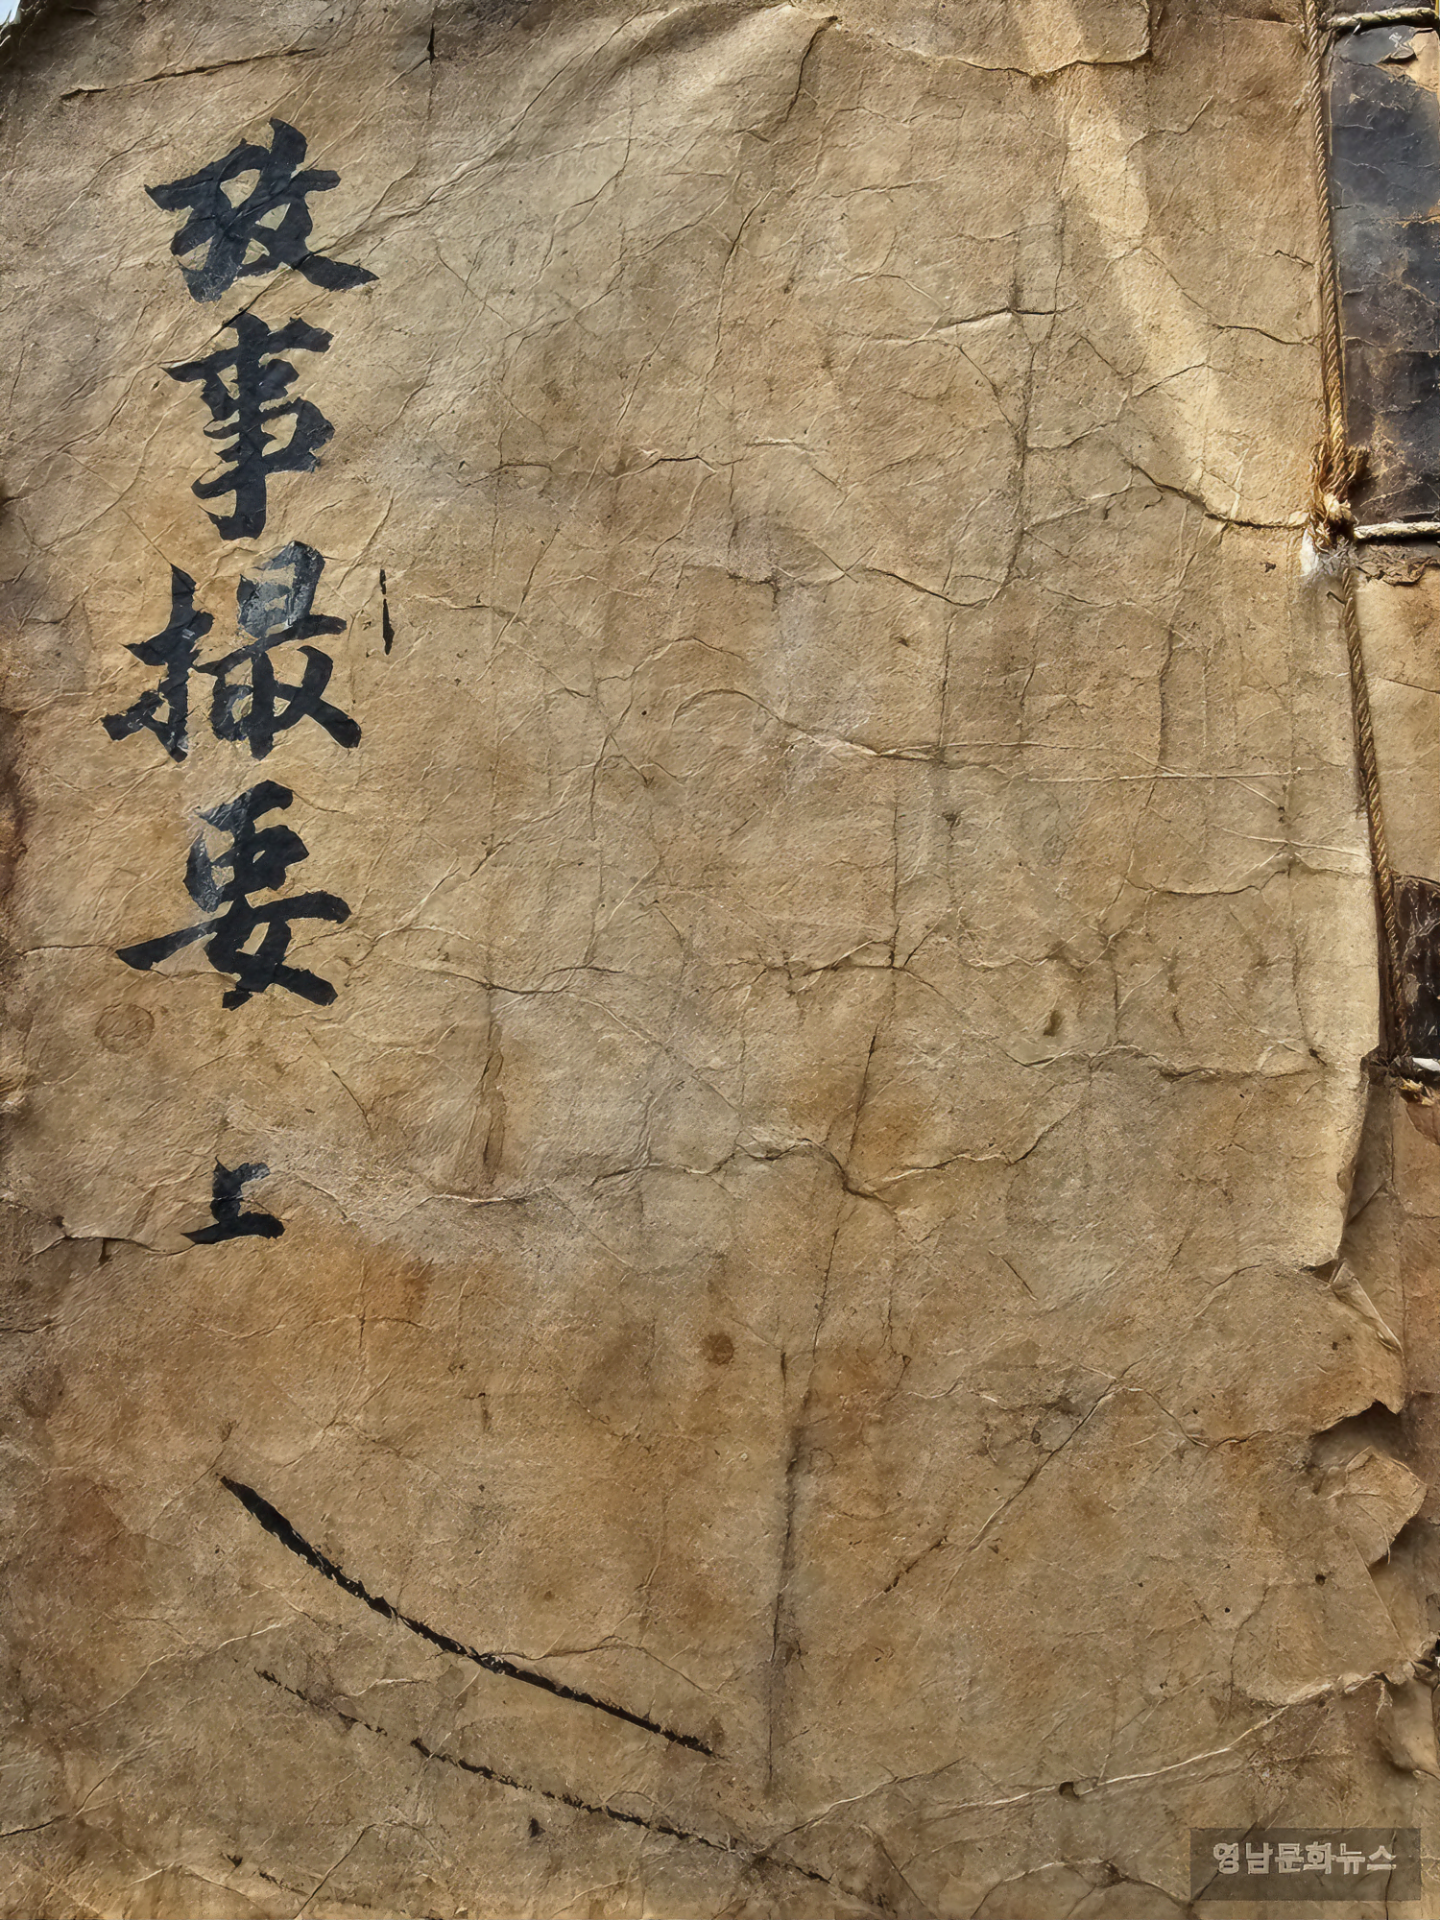 攷事撮要 上
영남문화뉴스